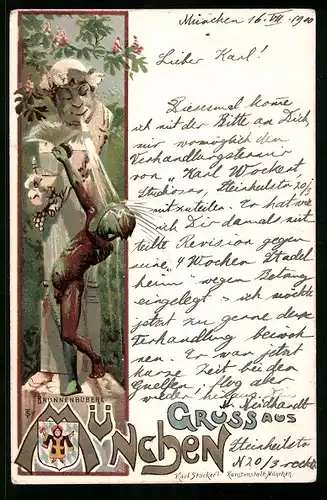 München 16. VII. 1900
Lieber Karl!
Diesesmal kome
ich mit der Bitte an Dich,
mir womöglich den
Verhandlungstermin
von "Karl Wockert
Studiosus, Steinheilstr 20/3
mitzuteilen. Er hat wie
ich Dir damals mit
teilte Revision gegen
seine "4 Wochen Stadel
heim" wegen Betrug
eingelegt u ich möchte
jetzt zu gerne der
Verhandlung beiwoh
nen. Er war jetzt
kurze Zeit bei den
Guelfen, flog aber
wieder hinaus.
Neidhardt
Steinheilstr
N 20/3 rechts
BRUNNENBUBERL
GRUSS AUS
MÜNCHEN
Karl Stücker's Kunstanstalt, München.